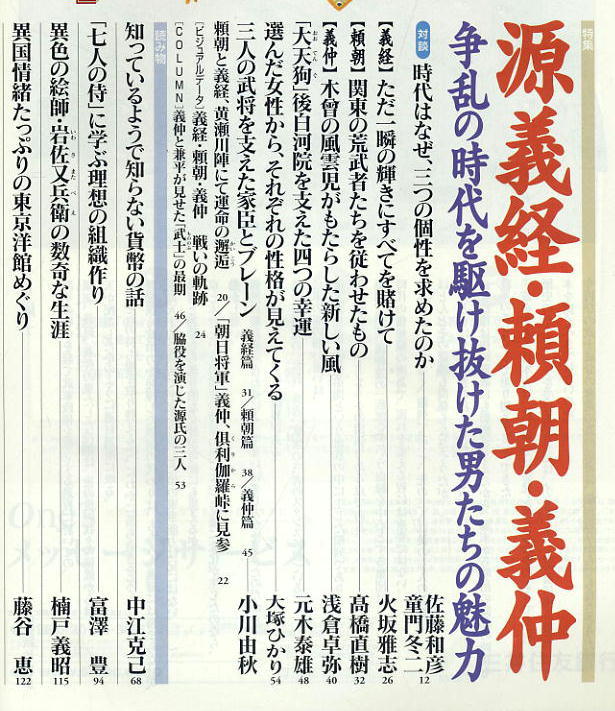 特集
源義経・頼朝・義仲
争乱の時代を駆け抜けた男たちの魅力
対談 時代はなぜ、三つの個性を求めたのか 佐藤和彦 童門冬二 12
【義経】ただ一瞬の輝きにすべてを賭けて 火坂雅志 26
【頼朝】関東の荒武者たちを従わせたもの 高橋直樹 32
【義仲】木曾の風雲児がもたらした新しい風 浅倉卓弥 40
「大天狗」後白河院を支えた四つの幸運 元木泰雄 48
選んだ女性から、それぞれの性格が見えてくる 大塚ひかり 54
三人の武将を支えた家臣とブレーン 義経篇 31/頼朝篇 38/義仲篇 45 小川由秋
頼朝と義経、黄瀬川陣にて運命の邂逅 20/「朝日将軍」義仲、倶利伽羅峠に見参 22
[ビジュアルデータ]義経・頼朝・義仲 戦いの軌跡 24
[COLUMN]義仲と兼平が見せた「武士」の最期 46/脇役を演じた源氏の三人 53
読み物
知っているようで知らない貨幣の話 中江克己 68
「七人の侍」に学ぶ理想の組織作り 富澤 豊 94
異色の絵師・岩佐又兵衛の数奇な生涯 楠戸義昭 115
異国情緒たっぷりの東京洋館めぐり 藤谷 恵 122